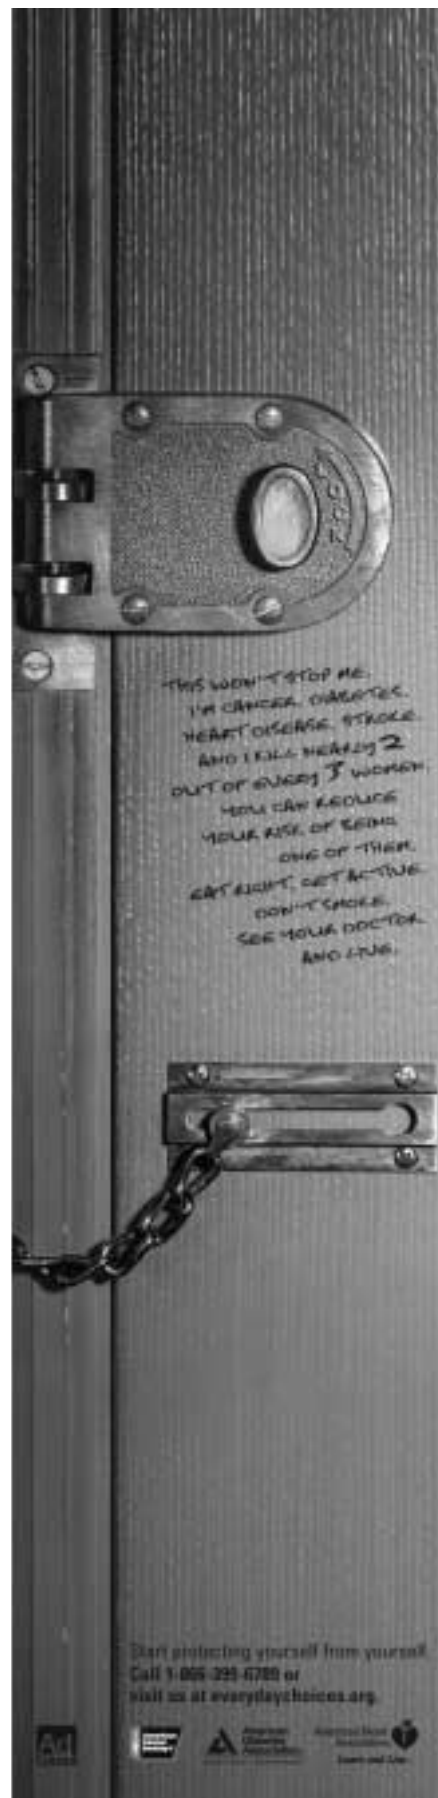 THIS WON'T STOP ME.
I'M CANCER. DIABETES.
HEART DISEASE. STROKE.
AND I KILL NEARLY 2
OUT OF EVERY 3 WOMEN.
YOU CAN REDUCE
YOUR RISK OF BEING
ONE OF THEM.
EAT RIGHT. GET ACTIVE.
DON'T SMOKE.
SEE YOUR DOCTOR.
AND LIVE.
Start protecting yourself from yourself.
Call 1-866-399-6789 or
visit us at everydaychoices.org.
Ad
American
Diabetes
Association
American Heart
Association
Learn and Live